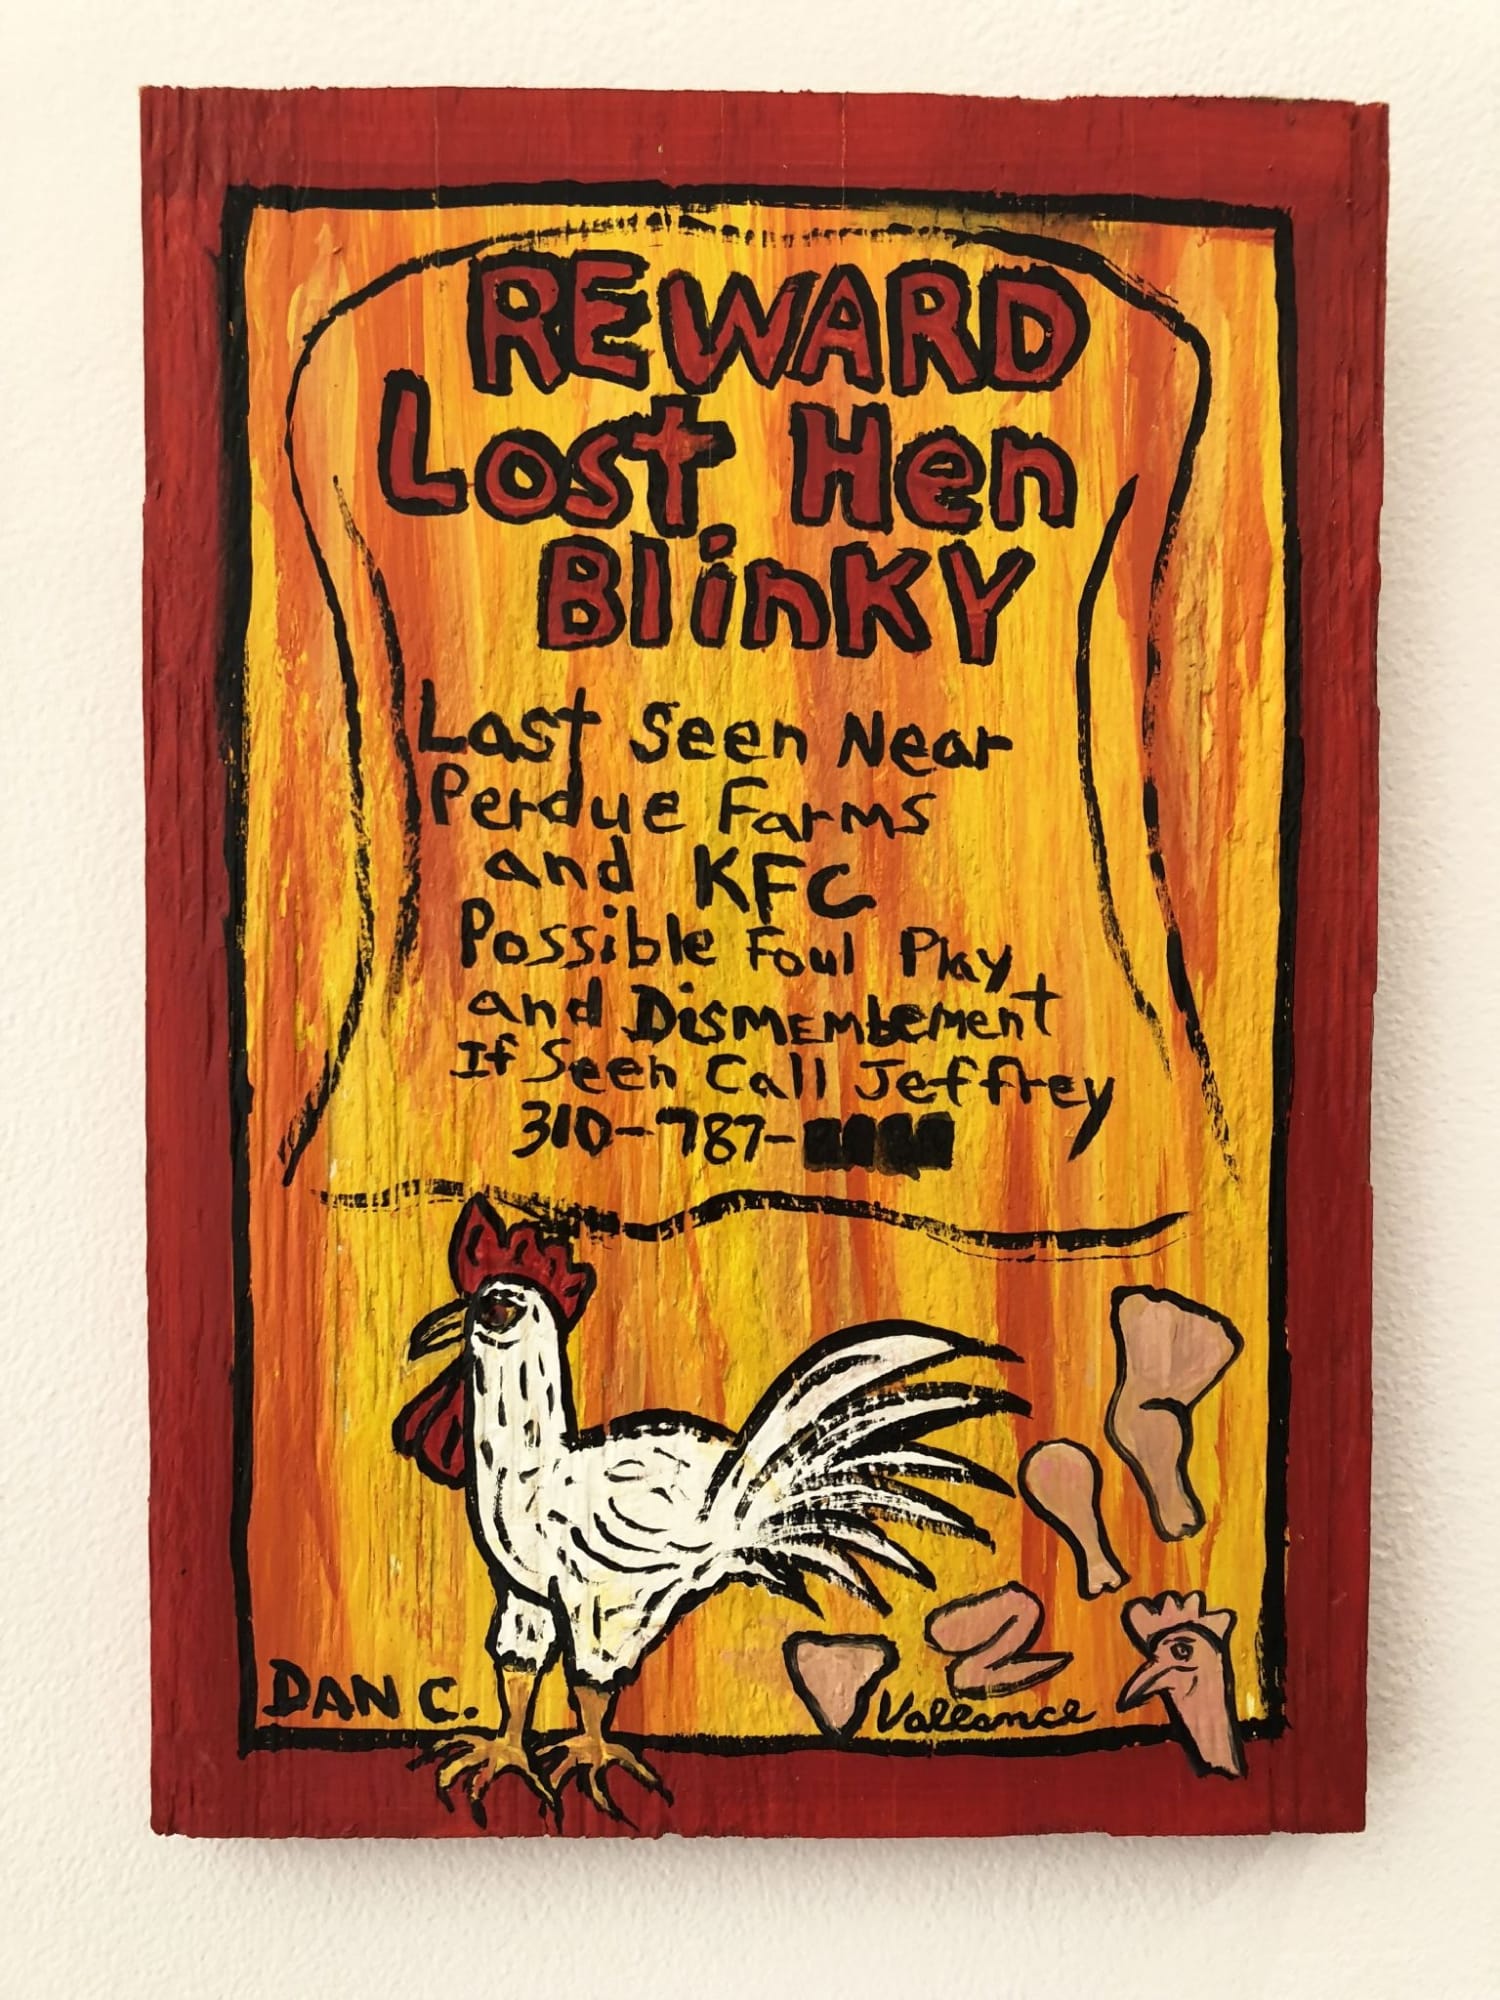 REWARD
Lost Hen
BlinKY
Last Seen Near
Perdue Farms
and KFC
Possible Foul Play
and Dismembement
If Seen Call Jeffrey
310-787-
DAN C.
Vallance